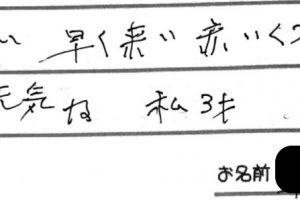 い 早く来い 赤いくつ
元気ね 私3才
お名前